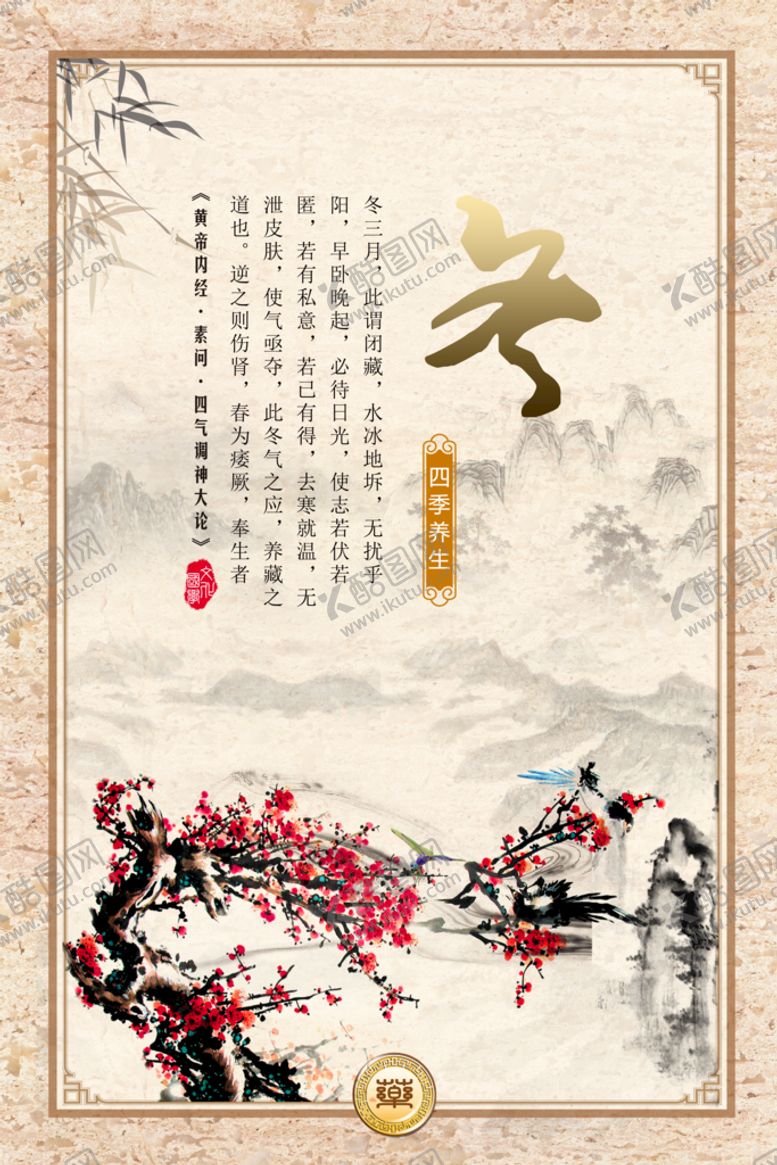 冬
四季养生
冬三月，此谓闭藏，水冰地坼，无扰乎
阳，早卧晚起，必待日光，使志若伏若
匿，若有私意，若己有得，去寒就温，无
泄皮肤，使气亟夺，此冬气之应，养藏之
道也。逆之则伤肾，春为痿厥，奉生者
《黄帝内经·素问·四气调神大论》
文化
國學
藥
酷图网
www.ikutu.com